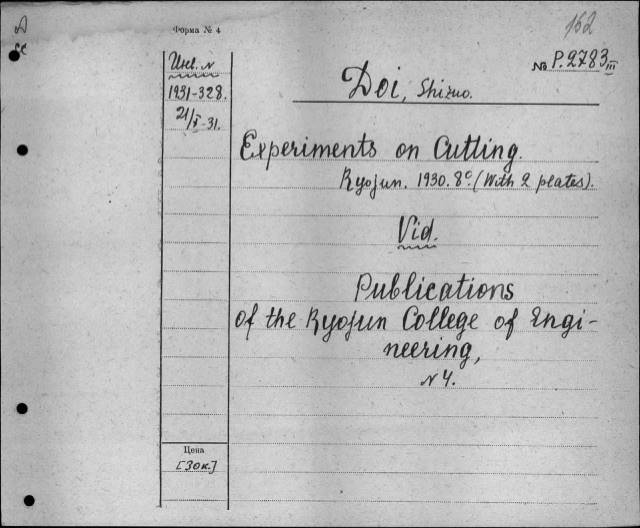 152
Форма № 4
№ P.2783 III
Инв. №
1931-328.
21/X-31.
Doi, Shizuo.
Experiments on Cutting.
Ryojun. 1930. 8º. (With 2 plates).
Vid.
Publications
of the Ryojun College of Engi-
neering,
№ 4.
Цена
[30к.]